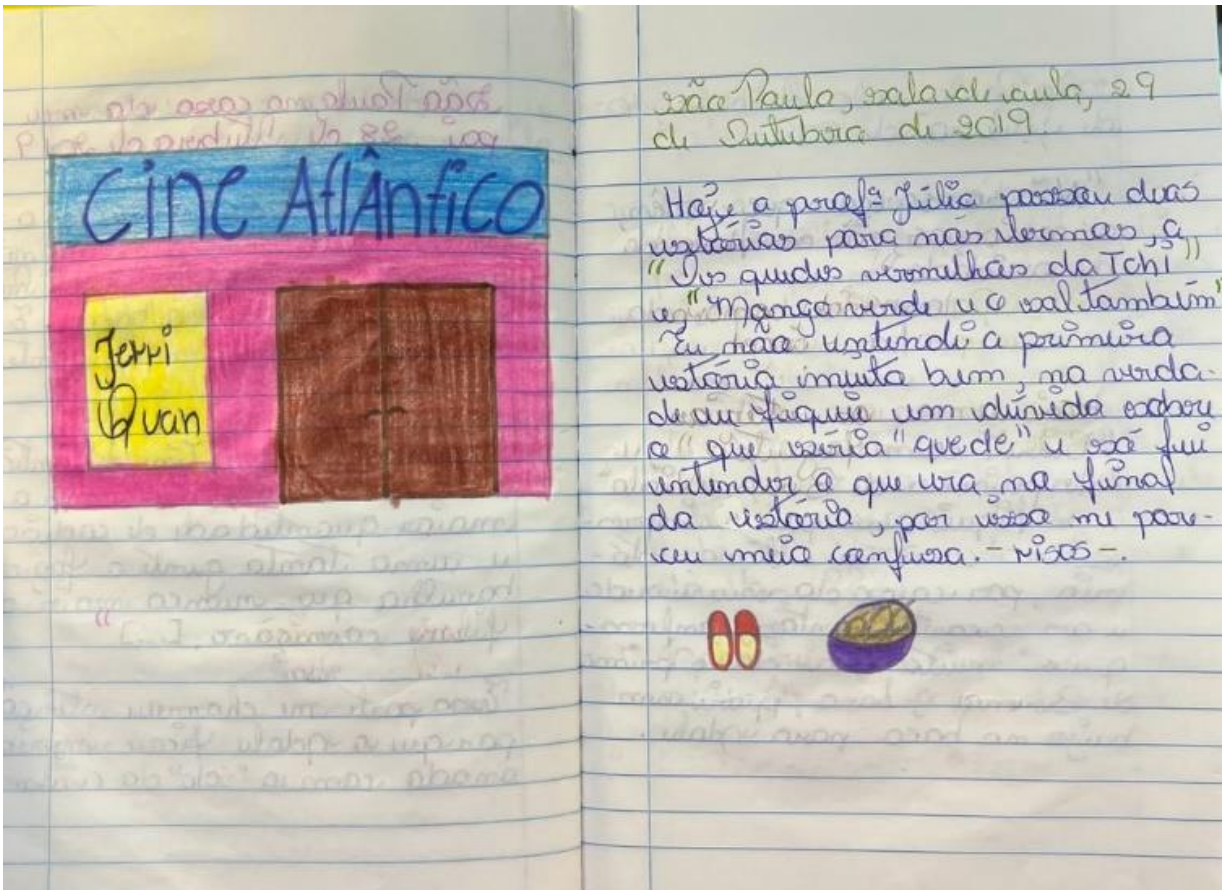 Cine Atlântico
Jerri
Quan
São Paulo, sala de aula, 29
de Outubro de 2019
Hoje a profª Júlia passou duas
estórias para nós lermos, a
"Os quedes vermelhos da Tchi"
e "Manga verde e o sal também"
Eu não entendi a primeira
estória muito bem, na verda-
de eu fiquei um dúvida sobre
o que seria "quede" e só fui
entender o que era no final
da estória, por isso me pare-
ceu meio confusa. - risos -.